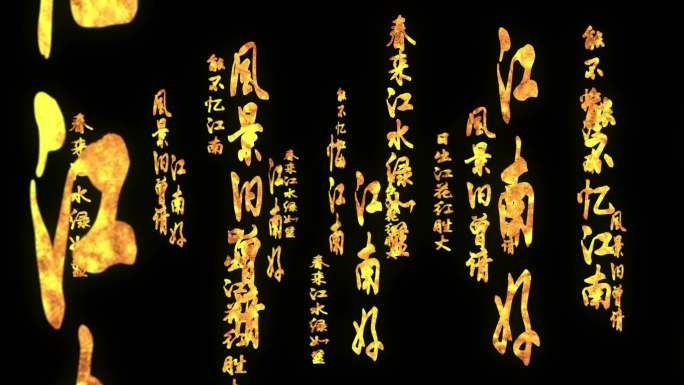 能不忆江南
风景旧曾
能不忆江南
江南好
风景旧曾
日出江花红胜火
春来江水绿如蓝
江南好
能不忆江南
春来江水绿如蓝
春来江水绿如蓝
江南好
風景旧曾
江花红胜火
能不忆江南
江南好
风景旧曾
春来江水绿如蓝
江